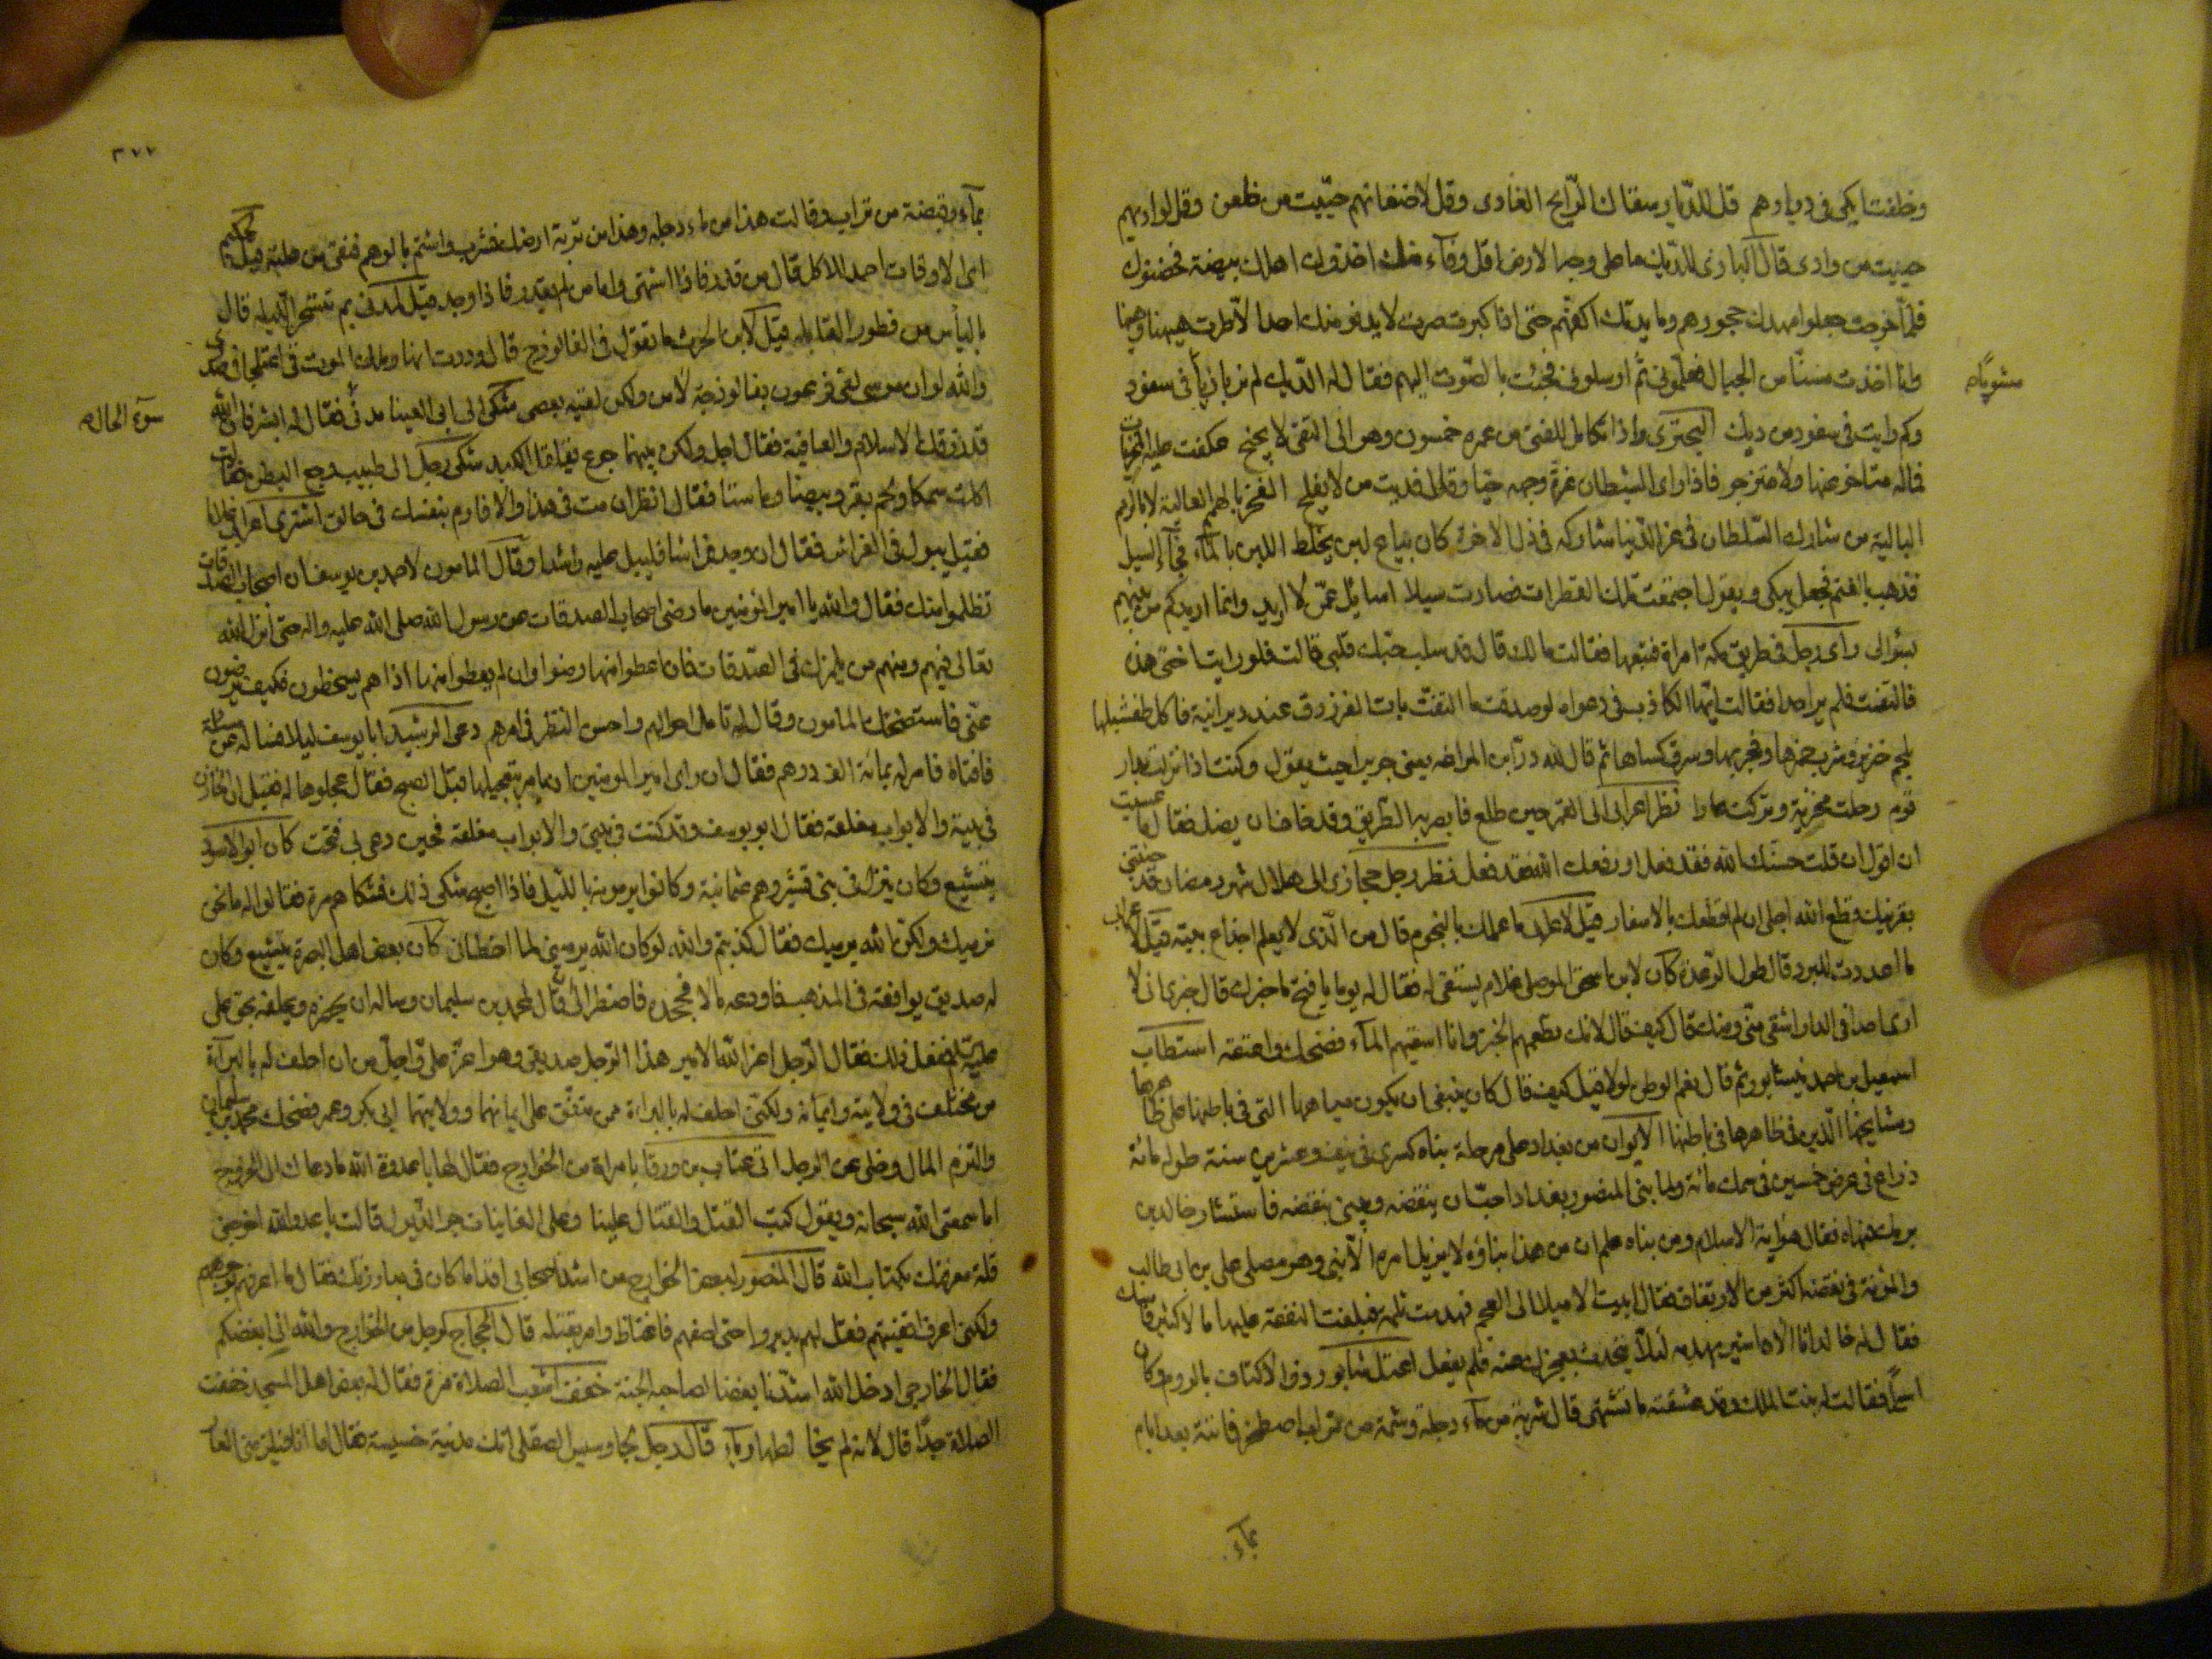 وظلفت ابكى فى ديارهم قل للديار سقاك الرّايح الغادى وقل لاضغانهم حيّيت من ظعن وقل لواديهم
حييت من وادى قال البازى للديك ما على وجه الارض اقل وفاء منك اخذوك اهلك بيضة فحضنوك
فلمّا خرجت جعلوا مهدك حجورهم ومايدتك اكفهم حتى اذا كبرت صرت لا يدنو منك احد الا طرت هيهنا وهيهنا
وانا اخذت مسنّا من الجبال فعلّمونى ثم ارسلونى فجئت بالصوت اليهم فقال له الديك لم تر بازيا فى سفود
مشويا
وكم رايت فى سفود من ديك البحترى واذا تكامل للفتى من عمره خمسون وهو الى التقى لا يجنح عكفت عليه المخزيات
فما له متاخر عنها ولا متزحزح فاذا راى الشيطان غرة وجهه حيّا وقال فديت من لا يفلح الفخر بالهمم العالية لا بالرمم
البالية من شارك السّلطان فى عز الدّنيا شاركه فى ذل الاخرة كان بياع لبن يخلط اللبن بالماء فجاء السيل
فذهب بالغنم فجعل يبكى ويقول اجتمعت تلك القطرات فصارت سيلا اسايل عمّن لا اريد وانما اريدكم من بينهم
بسؤالى راى رجل فى طريق مكة امراة فتبعها فقالت مالك قال قد سلب حبّك قلبى قالت فلو رايت اختى هذه
فالتفت فلم ير احدا فقالت ايّها الكاذب فى دعواه لو صدقت ما التفتّ بات الفرزدق عند ديرانية فاكل طفشيلها
بلحم خنزير وشرب خمرها وفجر بها وسرق كساها ثم قال لله درّ ابن المراغه يعنى جريرا حيث يقول وكنت اذا نزلت بدار
قوم رحلت بخزية وتركت عارا نظر اعرابى الى القمر حين طلع فابصر به الطّريق وقد خاف ان يضل فقال ما عسيت
ان اقول ان قلت حسّنك الله فقد فعل او رفعك الله فقد فعل نظر رجل حجازى الى هلال شهر رمضان قد جئتنى
بقرنيك قطع الله اجلى ان لم اقطعك بالاسفار قيل لاعرابى ما علمك بالنجوم قال من الّذى لا يعلم اجذاع بيته قيل لاعرابى
ما اعددت للبرد قال طول الرّعدة كان لابن اسحق الموصلى غلام يستقى له فقال له يوما يا فتح ما خبرك قال خبرى انى لا
ارى احدا فى الدار اشقى منّى ومنك قال كيف قال لانك تطعمهم الخبز وانا اسقيهم الماء فضحك واعتقه استطاب
اسمعيل بن احمد نيسابور ثم قال نعم الوطن لولا قيل كيف قال كان ينبغى ان يكون مياهها التى فى باطنها على ظاهرها
ومشايخها الّذين فى ظاهرها فى باطنها الايوان من بغداد على مرحلة بناه كسرى فى نيف وعشرين سنة طوله مائة
ذراع فى عرض خمسين فى سمك مائة ولما بنى المنصور بغداد احبّ ان ينقضه ويبنى بنقضه فاستشار خالد بن
برمك فنهاه فقال هو اية الاسلام ومن بناه علم ان من هذا بناؤه لا يزيل امره الا نبى وهو مصلى على بن ابى طالب
والمؤنة فى نقضه اكثر من الارتفاق فقال ابيت الا ميلا الى العجم فهدمت ثلمة فبلغت النفقة عليها مالا كثيرا فامسك
فقال له خالد انا الان اشير بهدمه لئلا يتحدث بعجزك عنه فلم يفعل اعتل شابور ذو الاكتاف بالروم وكان
اسيرا فقالت له بنت الملك وقد عشقته ما تشتهى قال شربة من ماء دجلة وشمة من تراب اصطخر فاتته بعد ايام
بماء
٣٧٧
بماء وقبضة من تراب وقالت هذا من ماء دجله وهذا من تربة ارضك فشرب واشتم بالوهم فنقى من علته قيل لحكيم
اى الاوقات احمد للاكل قال من قدر فاذا اشتهى واما من لم يقدر فاذا وجد قيل لمدنى بم تتسحر الليله قال
باليأس من فطور القابله قيل لابى الحرث ما تقول فى الفالوذج قال وددت انها وملك الموت فى اعتلجا فى صدرى
والله لو ان موسى لقى فرعون بفالوذجة لآمن ولكن لقيه بعصى شكى الى ابى العينا مدنى فقال له ابشر فان الله
سوء الحال
قد رزقك الاسلام والعافية فقال اجل ولكن بينهما جوع يقلقل الكبد شكى رجل الى طبيب وجع البطن فقال
اكلت سمكا ولحم بقر وبيضا وماستا فقال انظر ان مت فى هذا والا فارم بنفسك فى حالق اشترى اعرابى غلاما
فقيل يبول فى الفراش فقال ان وجد فراشا فليبل عليه راشدا وقال المامون لاحمد بن يوسف ان اصحاب الصدقات
تظلموا منك فقال والله يا امير المؤمنين ما رضى اصحاب الصدقات عن رسول الله صلى الله عليه واله حتى انزل الله
تعالى فيهم ومنهم من يلمزك فى الصّدقات فان اعطوا منها رضوا وان لم يعطوا منها اذا هم يسخطون فكيف يرضون
عنّى فاستضحك المامون وقال له تامل احوالهم واحسن النظر فى امرهم دعى الرشيد ابا يوسف ليلا فساله عن مسئلة
فافتاه فامر له بمائة الف درهم فقال ان راى امير المومنين ان يامر بتعجيلها قبل الصبح فقال عجلوها له فقيل ان الخازن
فى بيته والابواب مغلقة فقال ابو يوسف وقد كنت فى بيتى والابواب مغلقة فحين دعى بى فتحت كان ابو الاسود
يتشيع وكان ينزل فى بنى قشير وهم عثمانية وكانوا يرمونه بالليل فاذا اصبح شكى ذلك فشكاهم مرة فقالوا له ما نحن
نرميك ولكن الله يرميك فقال كذبتم والله لو كان الله يرمينى لما اخطانى كان بعض اهل البصرة يتشيع وكان
له صديق يوافقه فى المذهب فاودعه مالا فجحده فاضطر الى ان قال لمحمد بن سليمان وساله ان يحضره ويحلفه بحق على
عليه السلام ففعل ذلك فقال الرّجل اعز الله الامير هذا الرّجل صديقى وهو اعزّ علىّ واجلّ من ان احلف له بالبراءة
من مختلف فى ولايته وايمانه ولكنى احلف له بالبراءة ممن يتفق على ايمانهما وولايتهما ابى بكر وعمر فضحك محمد بن سليمان
والتزم المال وخلى عن الرجل اتى عتاب بن ورقا بامراة من الخوارج فقال لها يا عدوة الله ما دعاك الى الخروج
اما سمعتى الله سبحانه ويقول كتب القتل والقتال علينا وعلى الغانيات جر الذّيول قالت يا عدو الله اخرجنى
قلة معرفتك بكتاب الله قال المنصور لبعض الخوارج من اشد اصحابى اقداما كان فى مبارزتك فقال ما اعرفهم بوجوههم
ولكنى اعرف اقفيتهم فقل لهم يدبروا حتى اصفهم فاغتاظ وامر بقتله قال الحجاج لرجل من الخوارج والله انى ابغضكم
فقال الخارجى ادخل الله اشدّنا بغضا لصاحبه الجنة خفف اشعب الصلاة مرة فقال له بعض اهل المسجد خففت
الصلاة جدّا قال لانه لم يخالطها رياء قال رجل